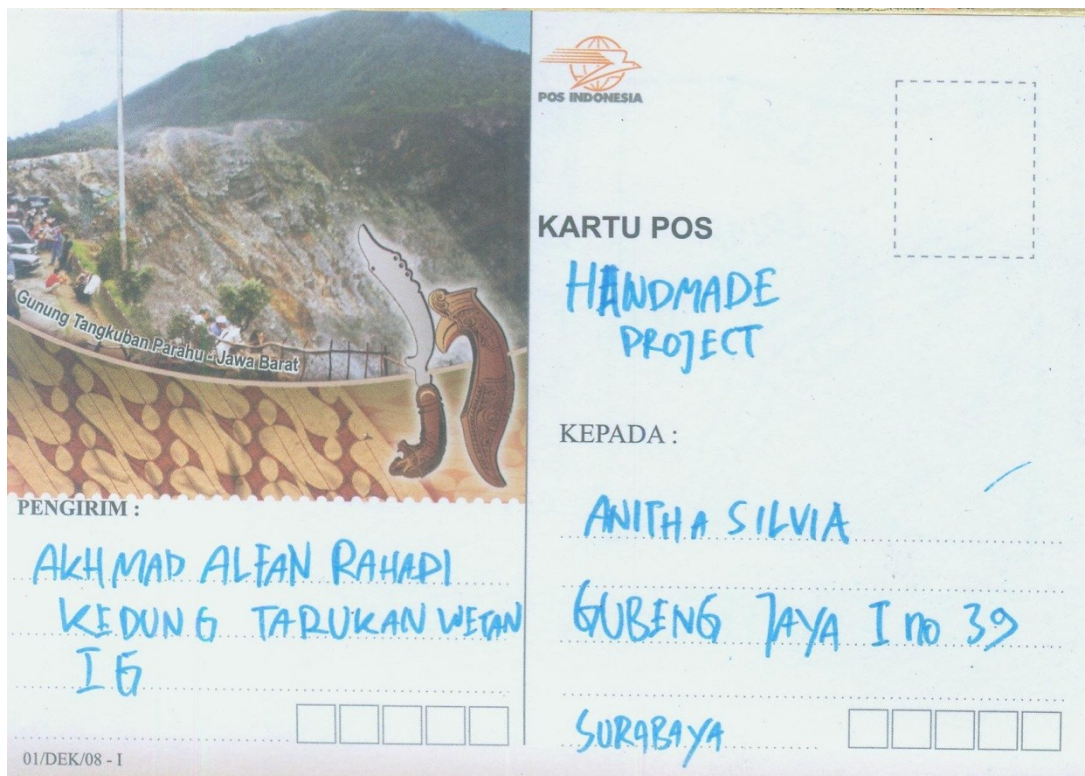 Gunung Tangkuban Parahu - Jawa Barat
PENGIRIM :
AKHMAD ALFAN RAHADI
KEDUNG TARUKAN WETAN
I G
01/DEK/08 - I
POS INDONESIA
KARTU POS
HANDMADE
PROJECT
KEPADA :
ANITHA SILVIA
GUBENG JAYA I no 39
SURABAYA